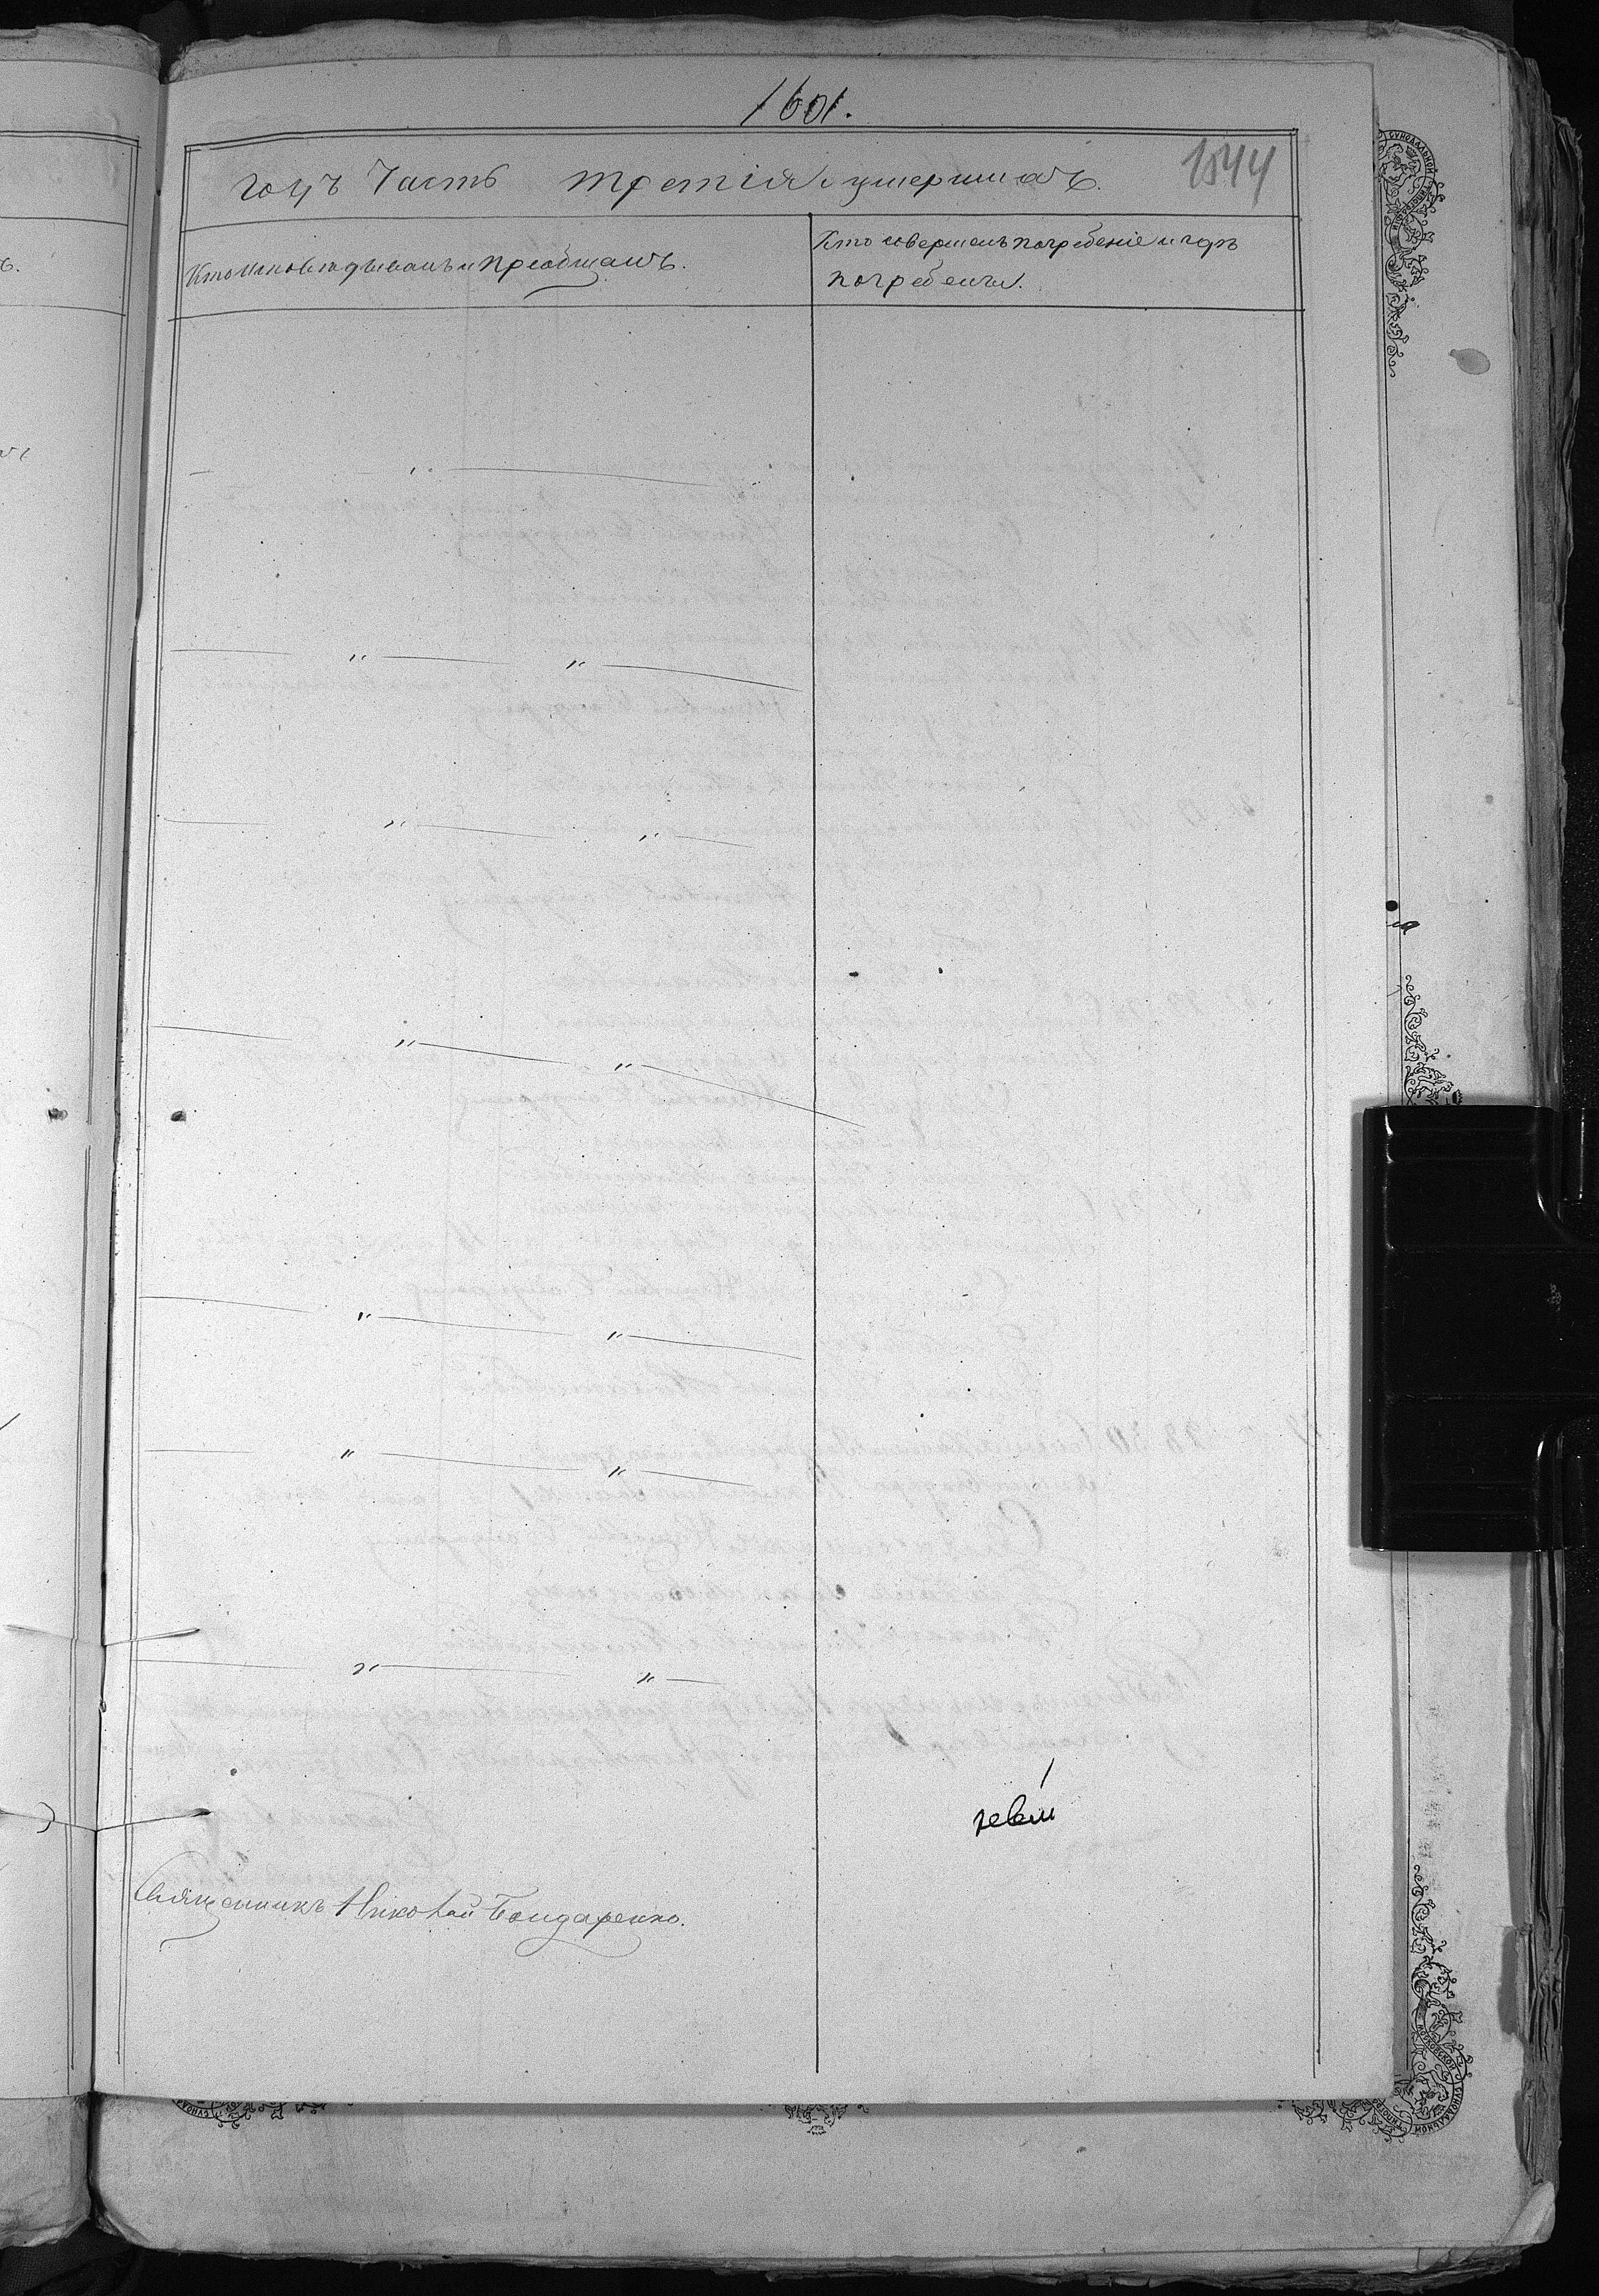 1601.
1544
годъ Часть третія о умершихъ.
Кто исповѣдывалъ и пріобщалъ.
Кто совершалъ погребеніе и гдѣ
погребены.
" "
" "
" "
" "
" "
" "
Священникъ Николай Бондаренко.